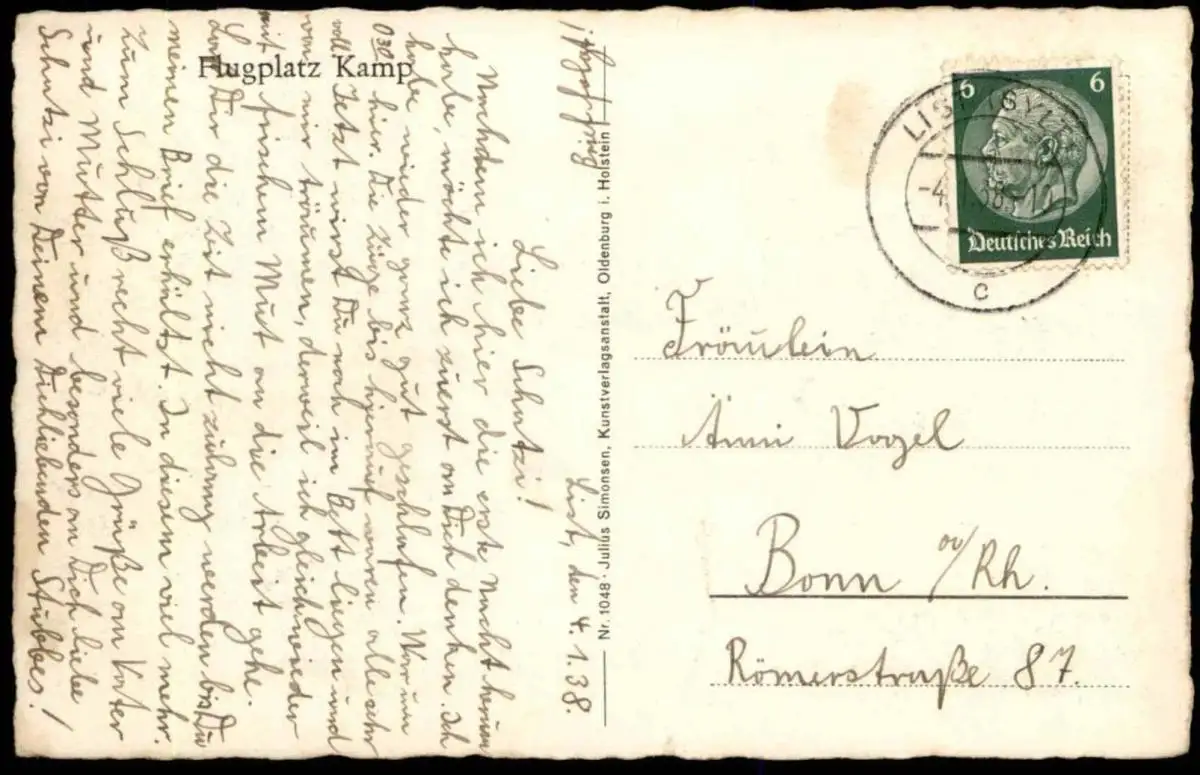 Flugplatz Kamp
List, den 4.1.38.
Liebe Schatzi!
Nachdem ich hier die erste Nacht herum
habe, möchte ich zuerst an Dich denken. Ich
habe wieder ganz gut geschlafen. War um
0³⁰ hier. Die Züge bis hierrauf waren alle sehr
voll. Jetzt wirst Du noch im Bett liegen und
von mir träumen, derweil ich gleich wieder
mit frischem Mut an die Arbeit gehe.
Daß Dir die Zeit nicht zu lang werden bis Du
meinen Brief erhältst. In diesem viel mehr.
Zum Schluß recht viele Grüße an Vater
und Mutter und besonders an Dich liebe
Schatzi von Deinem Dichliebenden Stubbes!
Nr. 1048 · Julius Simonsen, Kunstverlagsanstalt, Oldenburg i. Holstein
6 6
Deutsches Reich
LIST (SYLT)
c
Fräulein
Änni Vogel
Bonn a/Rh.
Römerstraße 87.